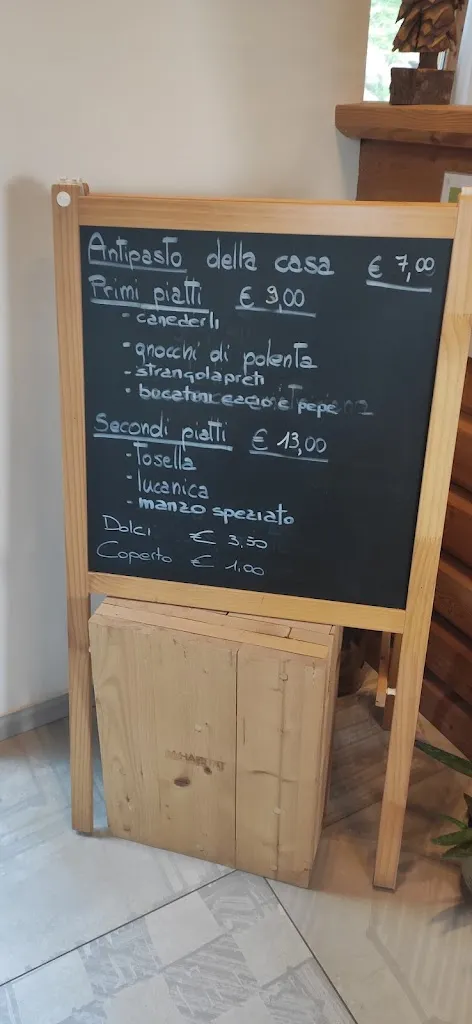 Antipasto della casa € 7,00
Primi piatti € 9,00
- canederli
- gnocchi di polenta
- strangolapreti
- bucatini cacio e pepe
Secondi piatti € 13,00
- Tosella
- lucanica
- manzo speziato
Dolci € 3,50
Coperto € 1,00